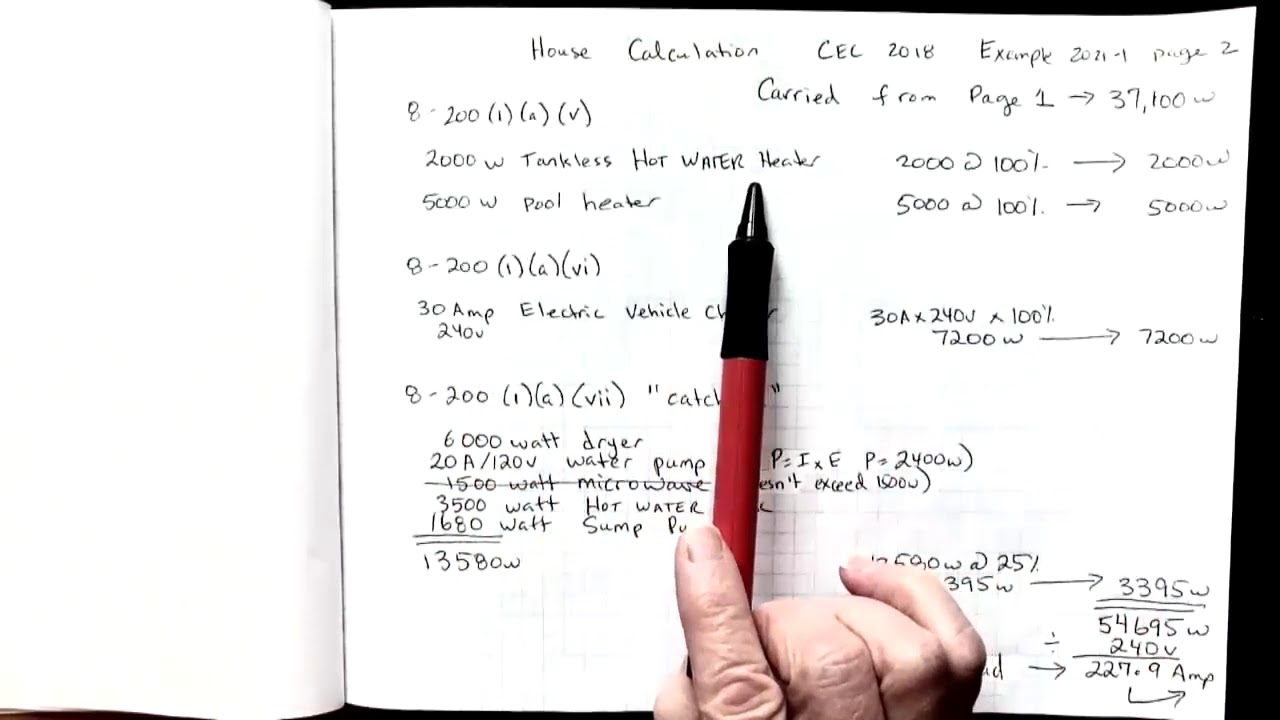 House Calculation CEC 2018 Example 2021-1 page 2
Carried from Page 1 → 37,100 w
8-200 (1)(a)(v)
2000 w Tankless HOT WATER Heater 2000 @ 100% → 2000w
5000 w pool heater 5000 @ 100% → 5000w
8-200 (1)(a)(vi)
30 Amp Electric Vehicle 30A x 240V x 100%
240v 7200 w → 7200w
8-200 (1)(a)(vii) "catch "
6000 watt dryer
20A/120v water pump P=IxE P=2400w)
1500 watt microwave exceed 1500w)
3500 watt HOT WATER
1680 watt Sump
13580w
@ 25%
395w → 3395w
54695w
÷ 240v
→ 227.9 Amp